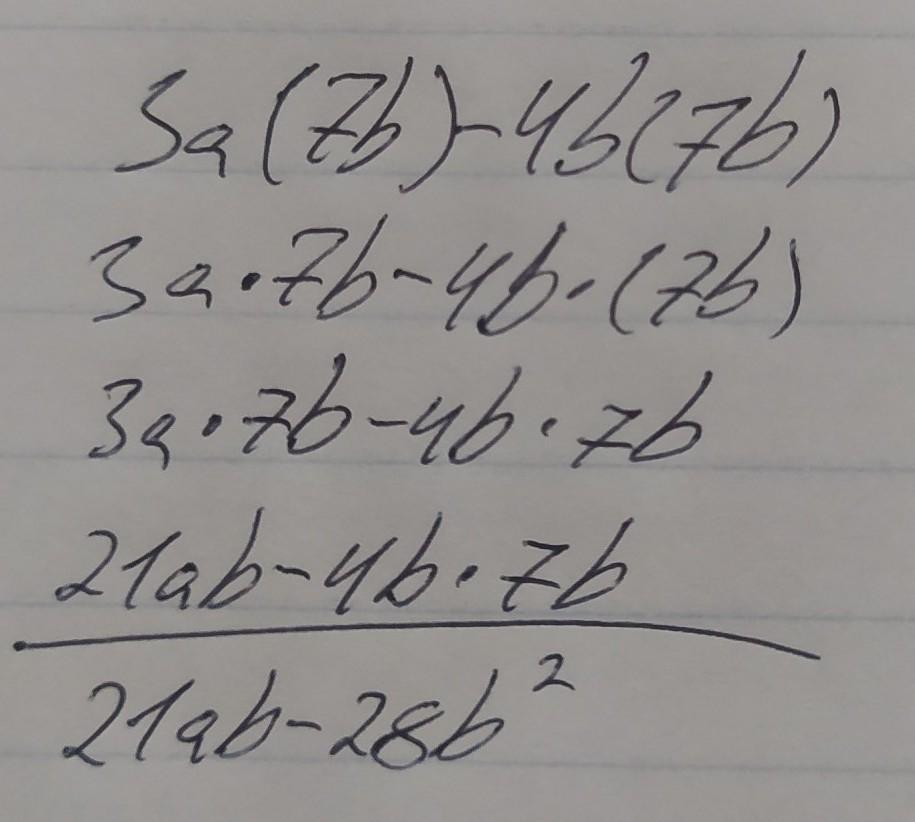 3a(7b)-4b(7b)
3a·7b-4b·(7b)
3a·7b-4b·7b
21ab-4b·7b
21ab-28b²